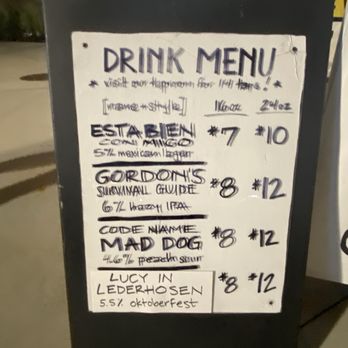 DRINK MENU
* visit our taproom for 14 more! *
[name + style] 16oz 24oz
ESTA BIEN $7 $10
CON MIGO
5% mexican lager
GORDON'S $8 $12
SURVIVAL GUIDE
6% hazy IPA
CODE NAME $8 $12
MAD DOG
4.6% peach sour
LUCY IN $8 $12
LEDERHOSEN
5.5% oktoberfest